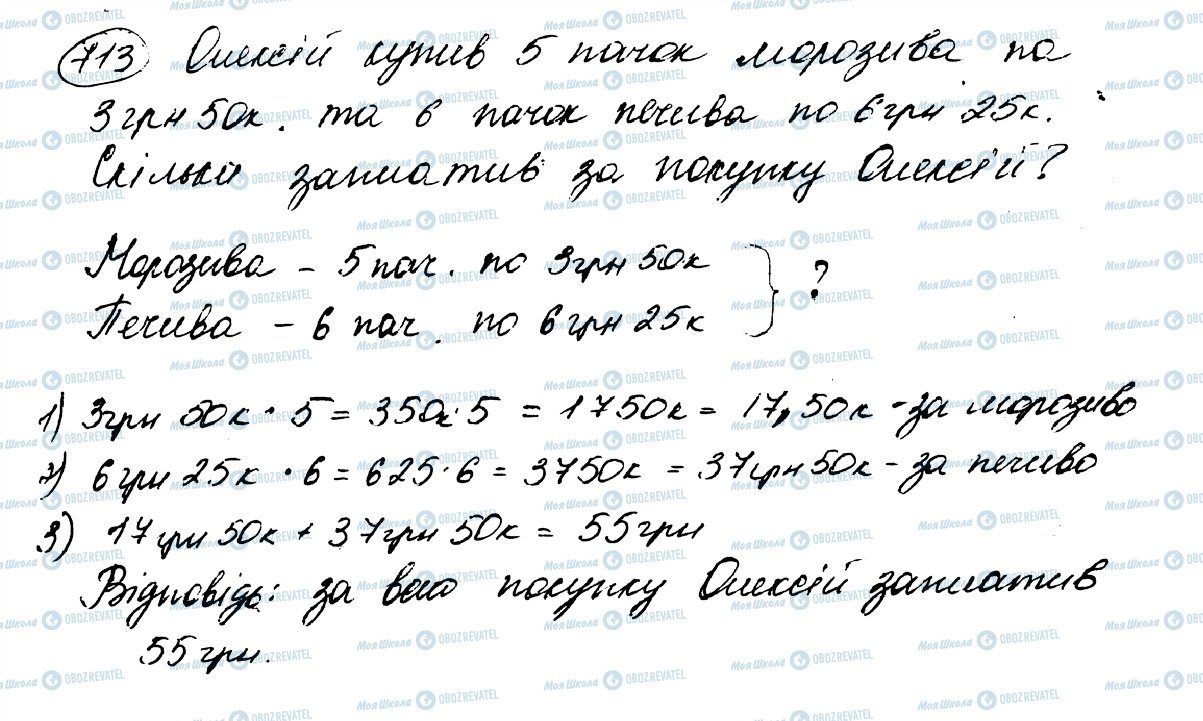 713 Олексій купив 5 пачок морозива по
3 грн 50к. та 6 пачок печива по 6 грн 25к.
Скільки заплатив за покупку Олексій?
Морозива – 5 пач. по 3 грн 50к
Печива – 6 пач. по 6 грн 25к } ?
1) 3 грн 50к · 5 = 350к · 5 = 1750к = 17, 50к - за морозиво
2) 6 грн 25к · 6 = 625 · 6 = 3750к = 37 грн 50к - за печиво
3) 17 грн 50к + 37 грн 50к = 55 грн
Відповідь: за всю покупку Олексій заплатив
55 грн.
МояШкола OBOZREVATEL